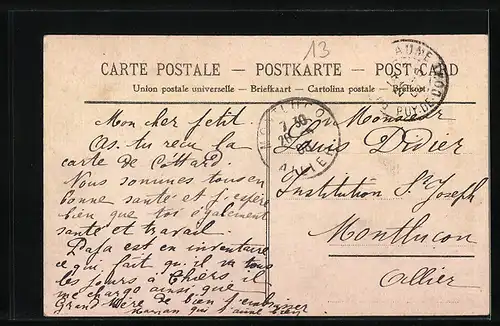 13
CARTE POSTALE – POSTKARTE – POST CARD
Union postale universelle – Briefkaart – Cartolina postale – Brefkort
PUY-DE-DOME
MONTLUÇON
7 30
ALLIER
Mon cher petit
As. tu reçu la
carte de Cottard.
Nous sommes tous en
bonne santé et j'espère
bien que toi également
santé et travail.
Papa est en inventaire
ce qui fait qu'il va tous
les jours à Thiers, il
me charge ainsi que
Grand Mère de bien t'embrasser
Maman qui t'aime bien
Mon Monsieur
Louis Didier
Institution St Joseph
Montluçon
Allier